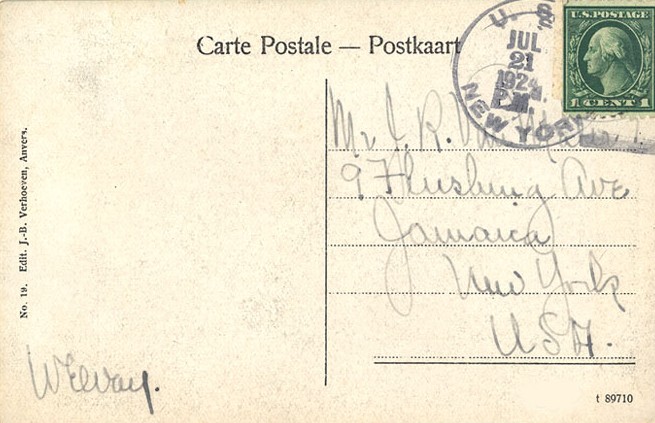 Carte Postale — Postkaart
U. S.
JUL
21
192
P.M.
NEW YORK
U.S. POSTAGE
1 CENT 1
Mr J. R. Van
9 Flushing Ave
Jamaica
New York
USA.
No. 19. Edit. J.-B. Verhoeven, Anvers.
t 89710